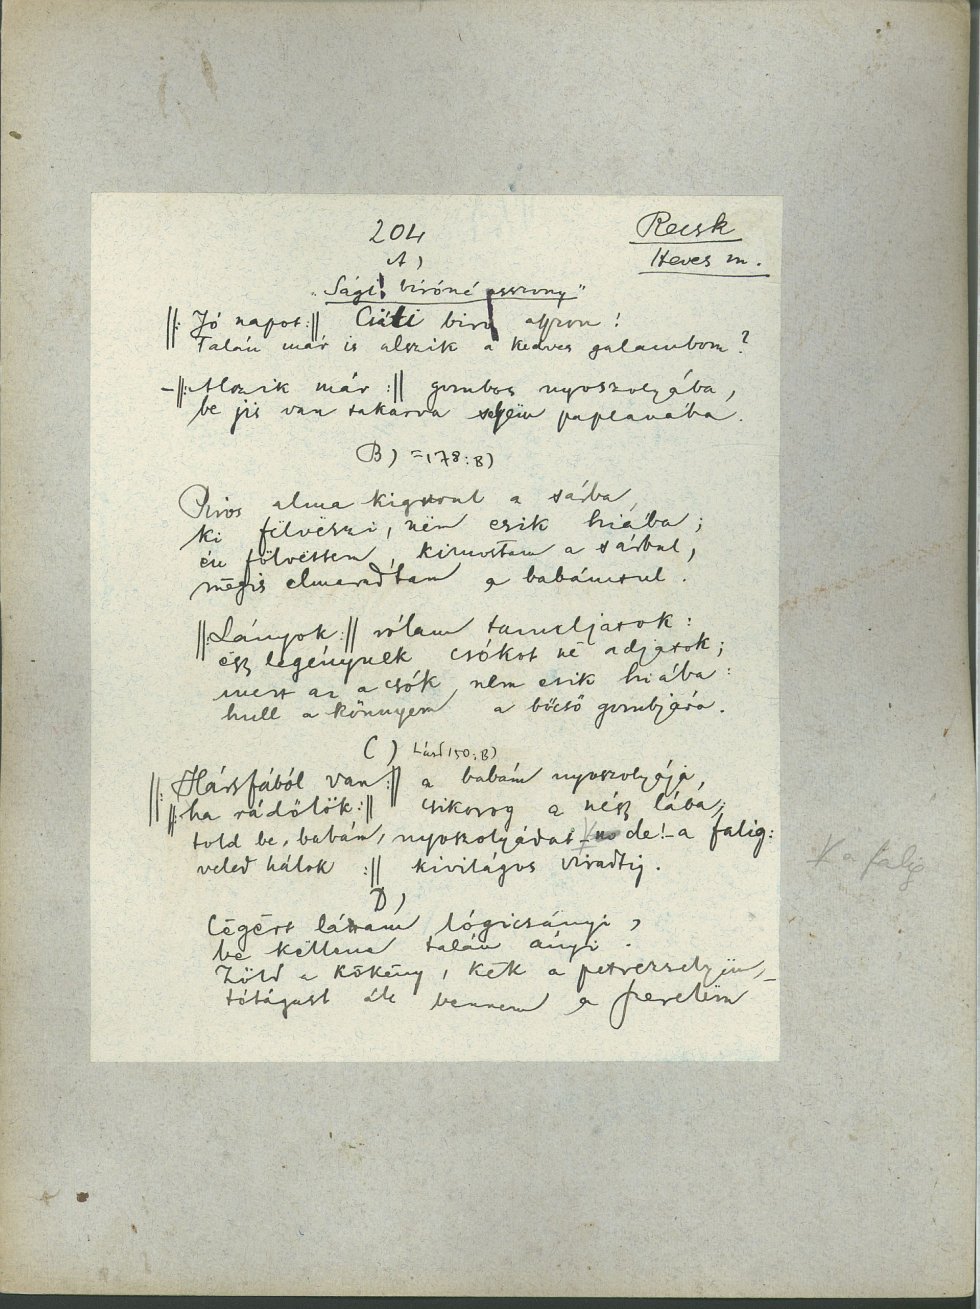 204
Recsk
Heves m.
A)
"Sági biróné asszony"
||: Jó napot :|| Csáti biró asszon!
Talán már is alszik a kedves galambom?
– ||: Alszik már :|| gombos nyoszolyába,
be jis van takarva selyëm paplanába.
B) = 178:B)
Piros alma kigurul a sárba,
ki fëlvëszi, nëm esik hiába;
én fölvëttem, kimostam a sárbul,
mégis elmaradtam a babámtul.
||: Lányok :|| rólam tanuljatok:
ësz legénynek csókot në adjatok;
mert az a csók nëm esik hiába:
hull a könnyem a bőcső gombjára.
C) Lásd 150:B)
||: Hársfából van :|| a babám nyoszolyája,
||: ha rádőlök :|| csikorog a nész lába;
told be, babám, nyoszolyádat – no de! – a falig:
veled hálok :|| kivilágos viradtig.
V a falig
D)
Cégért láttam lógicsányi,
be këllene talán ányi.
Zöld a kökény, kék a petrezselyëm, –
tótágast áll bennem a szerelëm